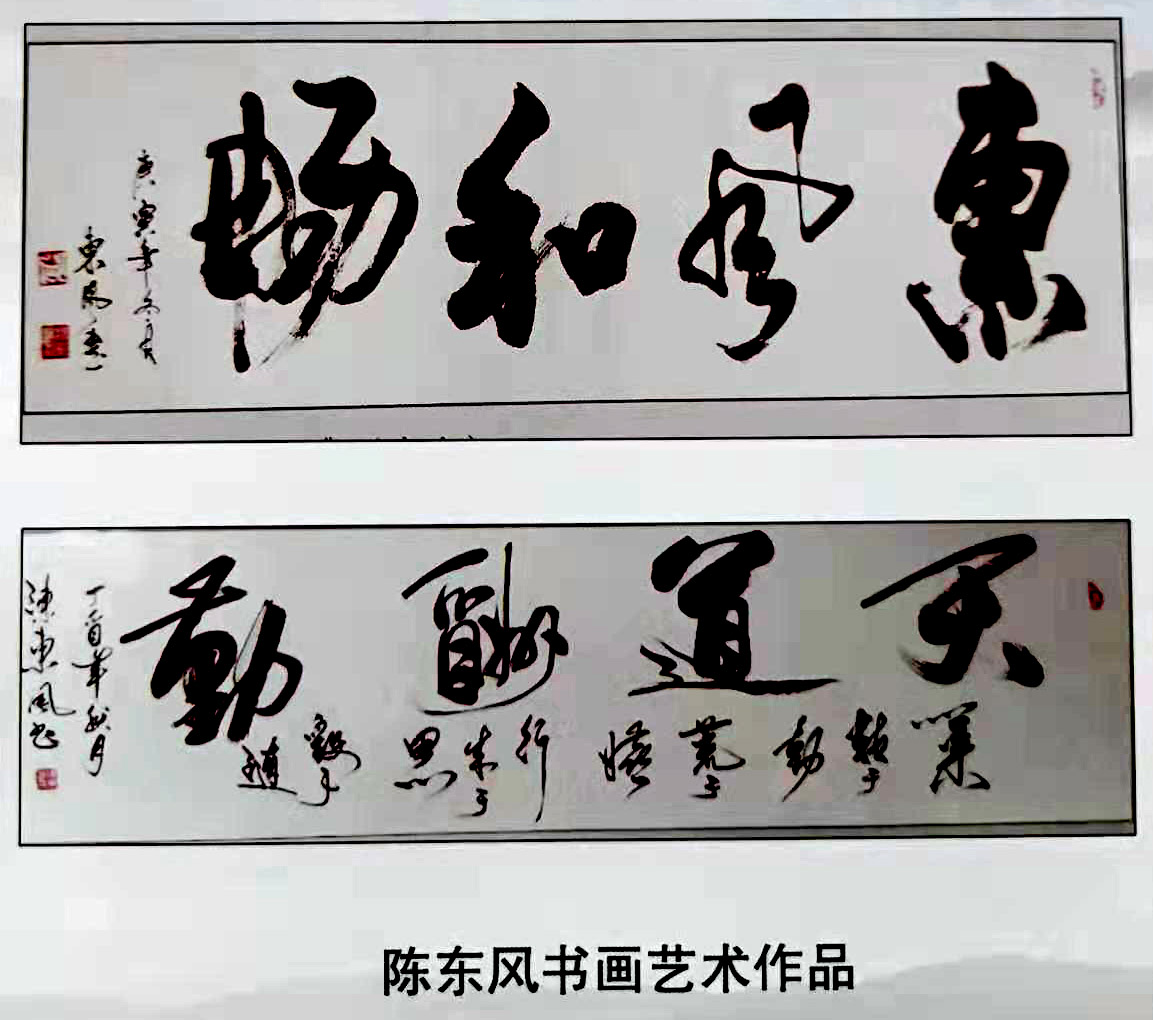 東風和暢
庚寅年冬月
東風書
天道酬勤
業精于勤荒于嬉行成于思毀于随
丁酉年秋月
陳東風书
陈东风书画艺术作品